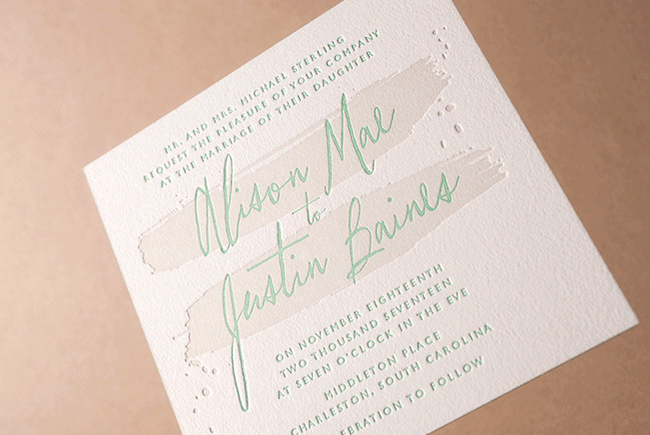 MR. AND MRS. MICHAEL STERLING
REQUEST THE PLEASURE OF YOUR COMPANY
AT THE MARRIAGE OF THEIR DAUGHTER
Alison Mae
to
Justin Baines
ON NOVEMBER EIGHTEENTH
TWO THOUSAND SEVENTEEN
AT SEVEN O'CLOCK IN THE EVE
MIDDLETON PLACE
CHARLESTON, SOUTH CAROLINA
EBRATION TO FOLLOW